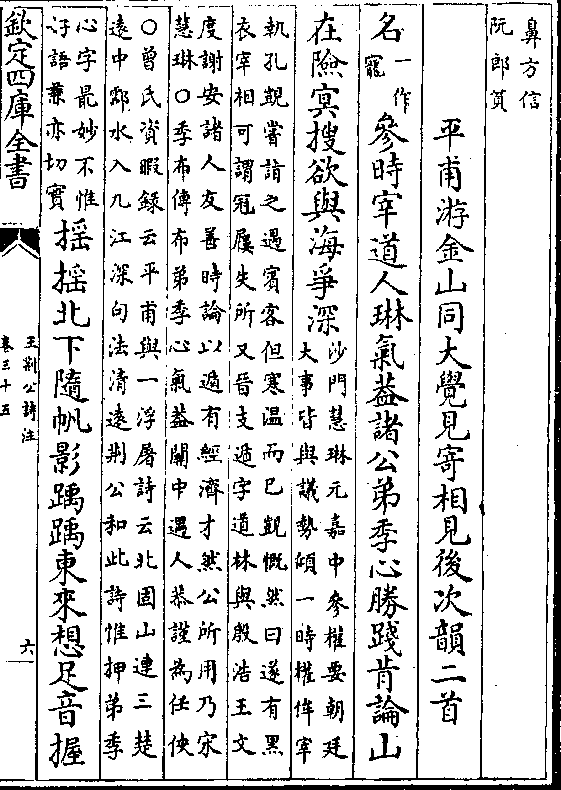 鼻方信
阮郎貧
平甫游金山同大覺見寄相見後次韻二首
名一作
寵參時宰道人琳氣蓋諸公弟季心勝踐肯論山
在險寞搜欲與海爭深沙門慧琳元嘉中參權要朝廷
大事皆與議勢傾一時權侔宰
執孔覬嘗詣之遇賓客但寒温而已覬慨然曰遂有黑
衣宰相可謂冠屨失所又晉支遁字道林與殷浩王文
度謝安諸人友善時論以遁有經濟才然公所用乃宋
慧琳○季布傳布弟季心氣蓋關中遇人恭謹為任俠
○曾氏資暇録云平甫與一浮屠詩云北固山連三楚
遠中郡水入九江深句法清遠荆公和此詩惟押弟季
心字最妙不惟
好語兼亦切實
揺揺北下隨帆影踽踽東來想足音握
欽定四庫全書
王荆公詩注
卷三十五
六